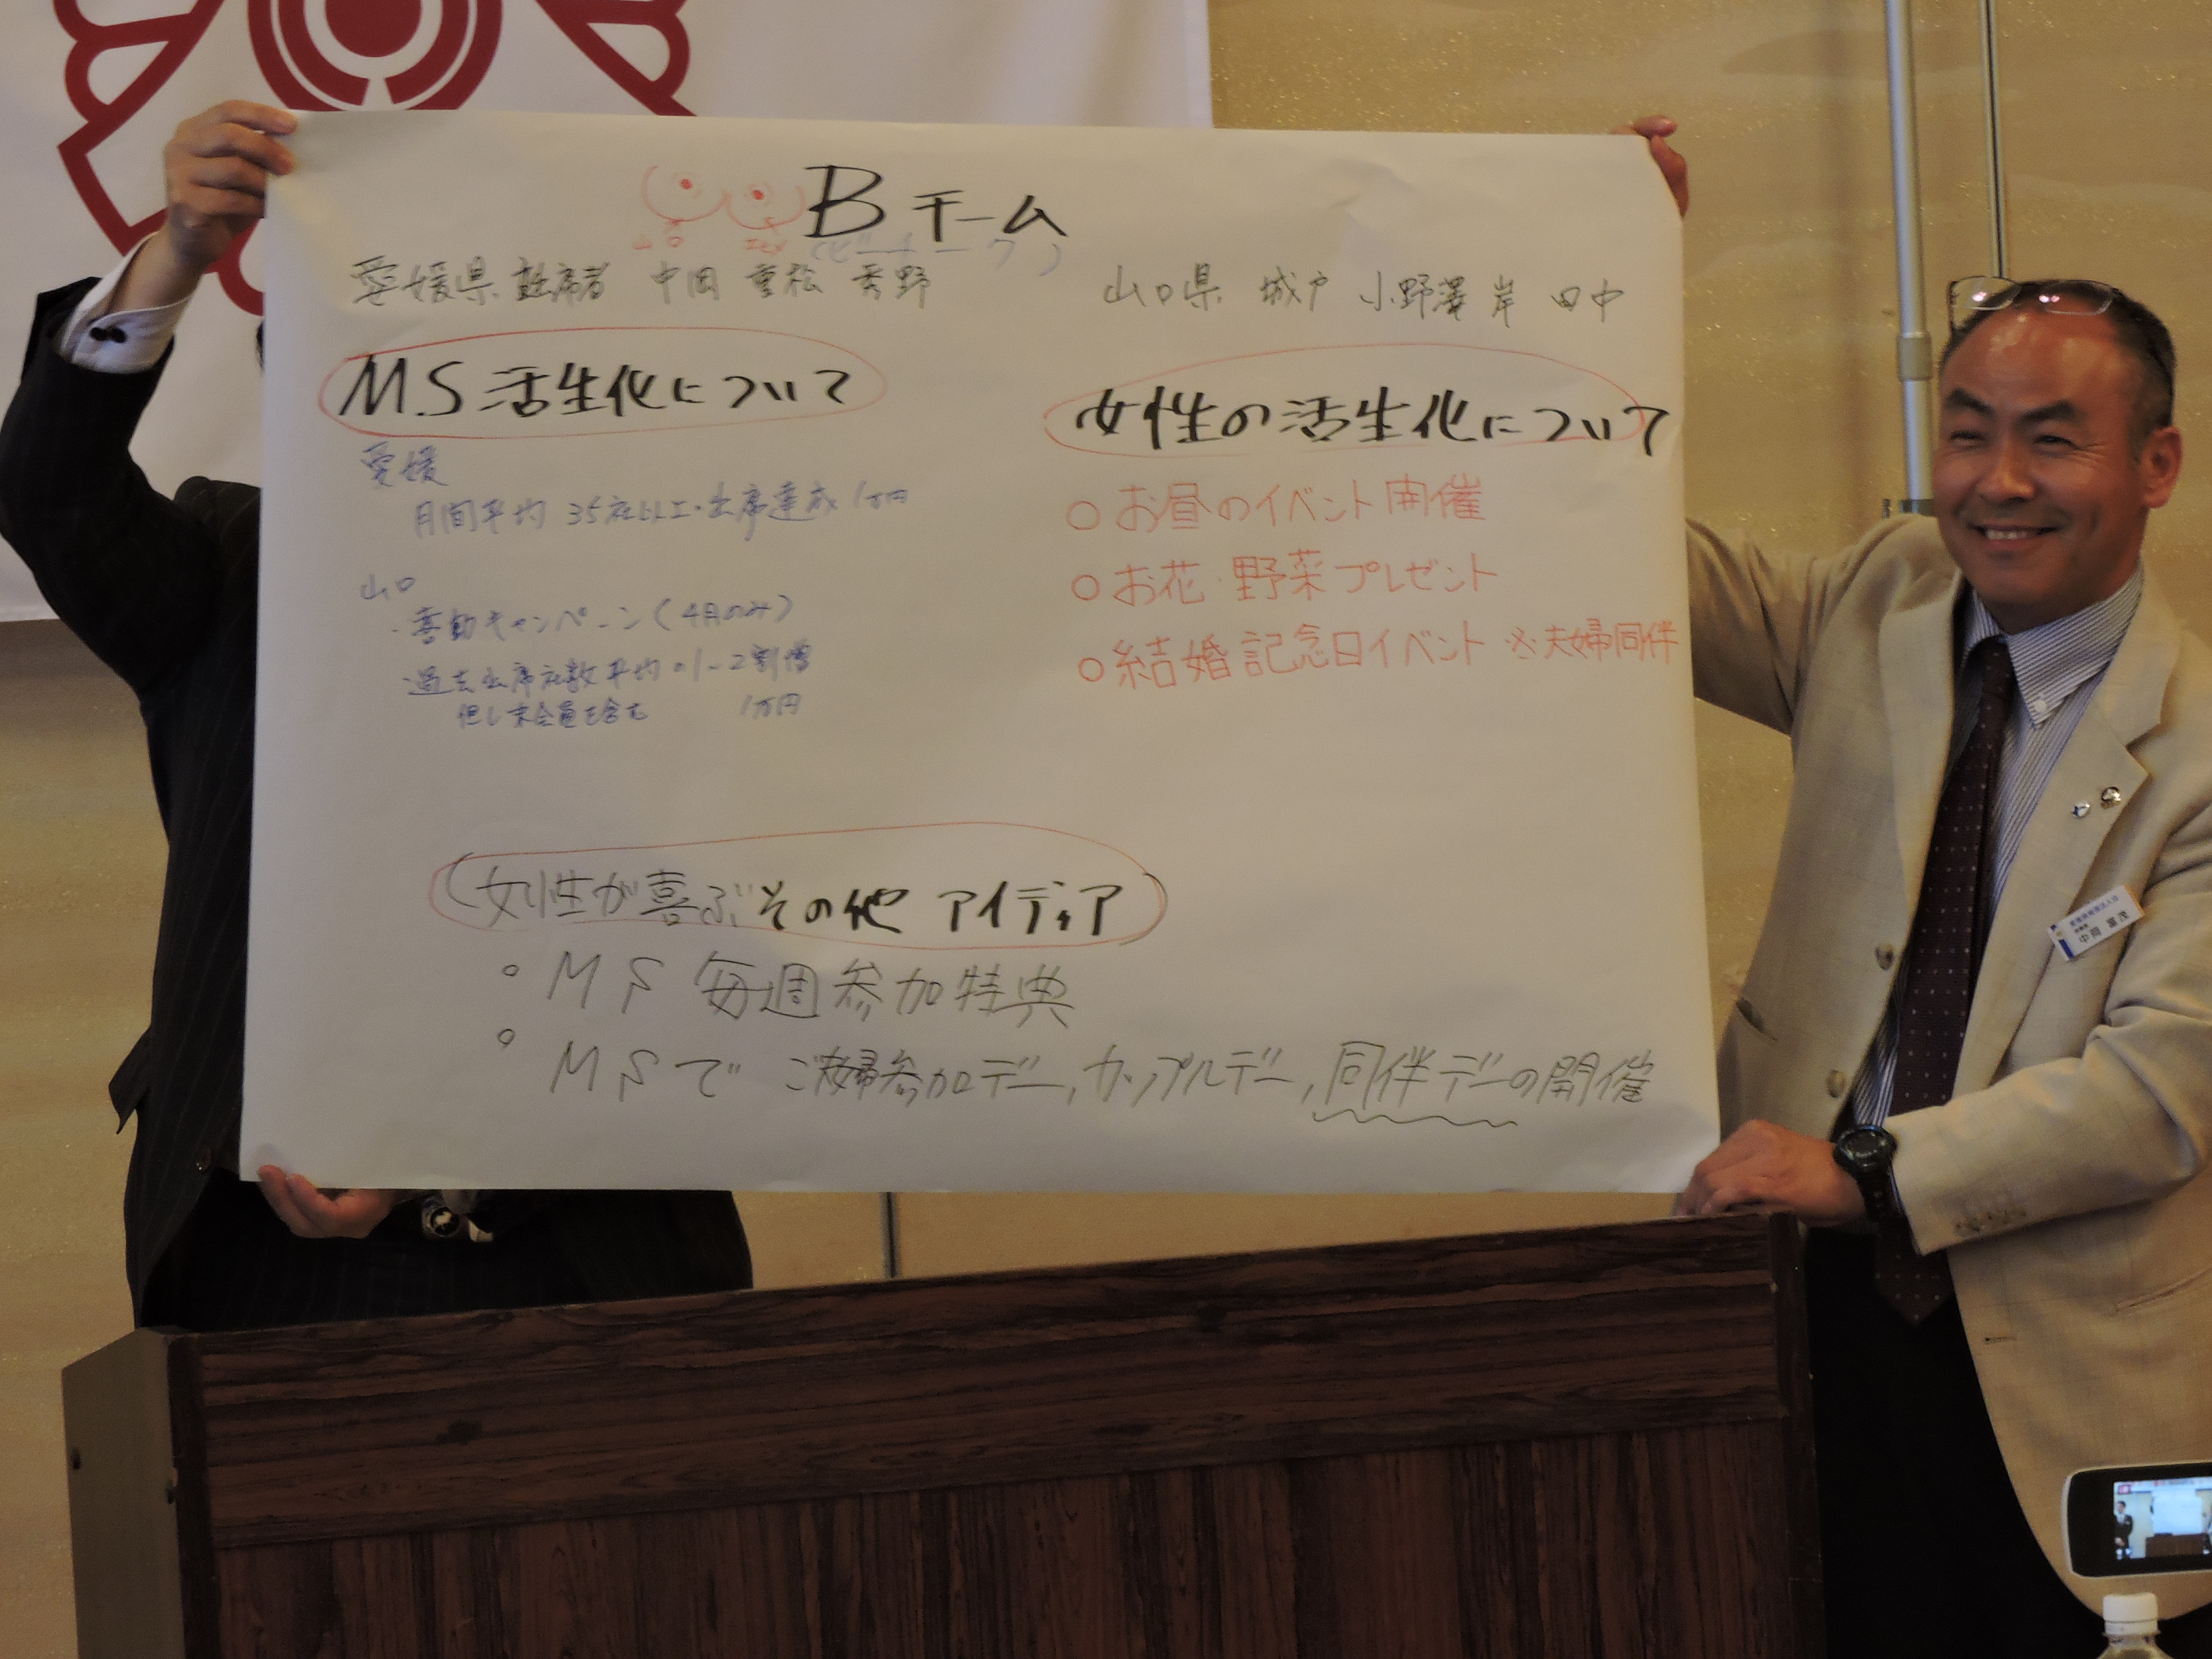 Bチーム
山口
(ビーチーク)
愛媛県 出席者 中岡 重松 秀野
山口県 城戸 小野澤 岸 田中
MS活生化について
愛媛
月間平均 35社以上・出席達成 1万円
山口
・喜動キャンペーン(4月のみ)
・過去出席社数平均の1~2割増
但し未会員を含む 1万円
女性の活生化について
○お昼のイベント開催
○お花・野菜プレゼント
○結婚記念日イベント ※夫婦同伴
(女性が喜ぶその他 アイディア)
○ MS 毎週参加特典
○ MSで ご夫婦参加デー,カップルデー,同伴デーの開催
中岡 富茂